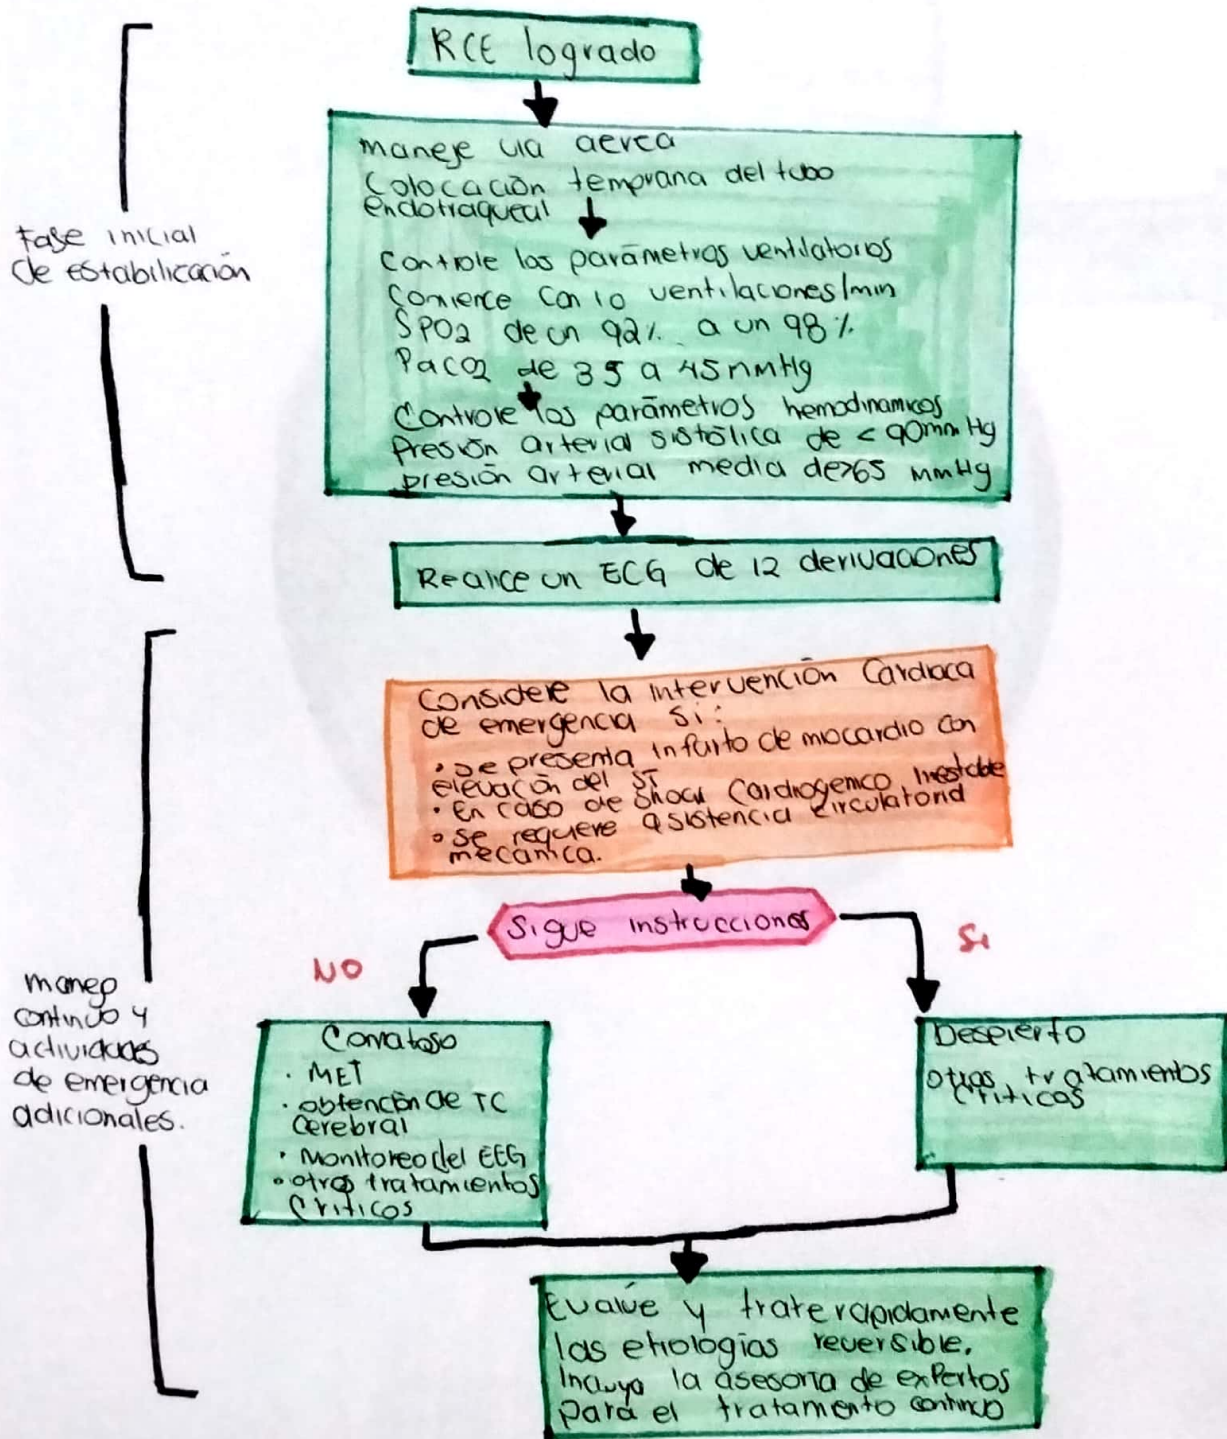 RCE logrado
maneje via aerea
Colocación temprana del tubo
endotraqueal
Controle los parámetros ventilatorios
Comience con 10 ventilaciones/min
SPO2 de un 92% a un 98%
PaCO2 de 35 a 45 mmHg
Controle los parámetros hemodinamicos
Presión arterial sistólica de < 90mm Hg
presión arterial media de >65 mmHg
Fase inicial
de estabilicación
Realice un ECG de 12 derivaciones
Considere la intervención Cardiaca
de emergencia si:
• se presenta infarto de mocardio con
elevación del ST
• En caso de shock Cardiogenico Inestable
• se requiere asistencia circulatoria
mecánica.
Sigue instrucciones
NO
Si
manejo
continuo y
actividades
de emergencia
adicionales.
Comatoso
• MET
• obtención de TC
Cerebral
• Monitoreo del EEG
• otros tratamientos
Criticos
Despierto
otros tratamientos
Criticos
Evalúe y trate rapidamente
las etiologías reversible.
Incluya la asesoria de expertos
para el tratamiento continuo